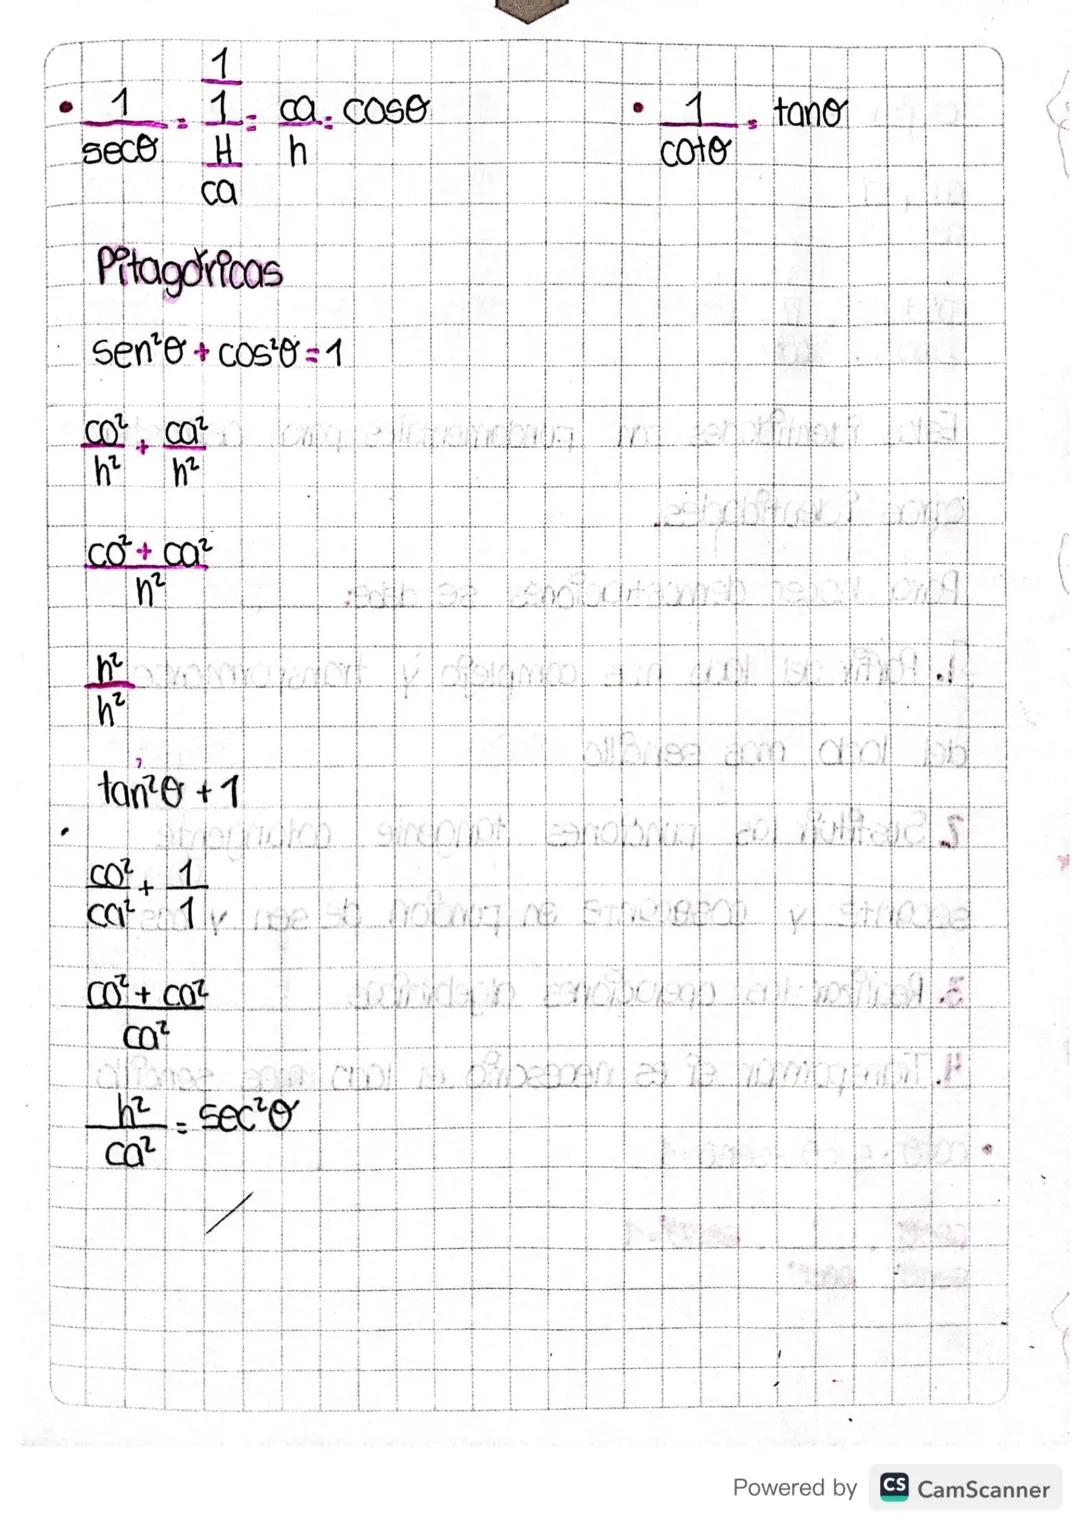 1/secθ = 1/(1/(H/ca)) = ca/h = cosθ
1/cotθ = tanθ
Pitagóricas
sen²θ + cos²θ = 1
co²/h² + ca²/h²
co² + ca²
h²
h²
h²
tan²θ + 1
co²/ca² + 1/1
co² + ca²
ca²
h²/ca² = sec²θ
Powered by CS CamScanner